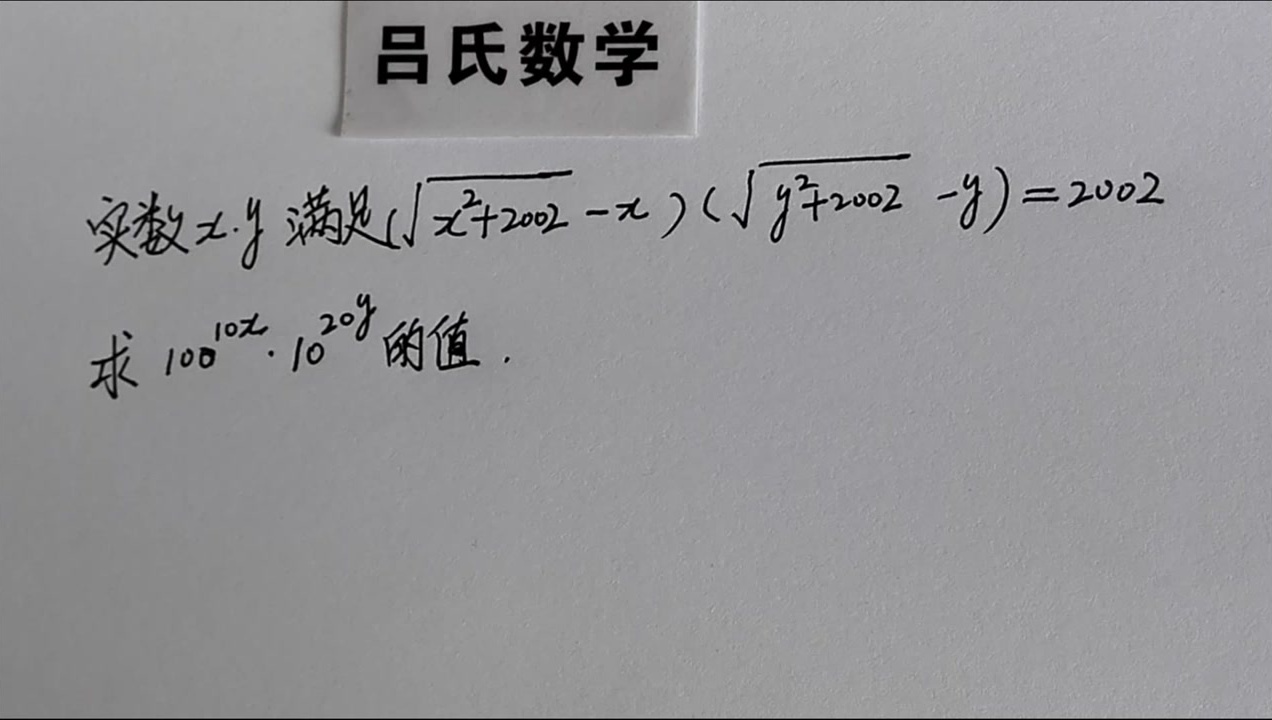 吕氏数学
实数x.y满足(√x²+2002 -x)(√y²+2002 -y)=2002
求 100^10x · 10^20y 的值.